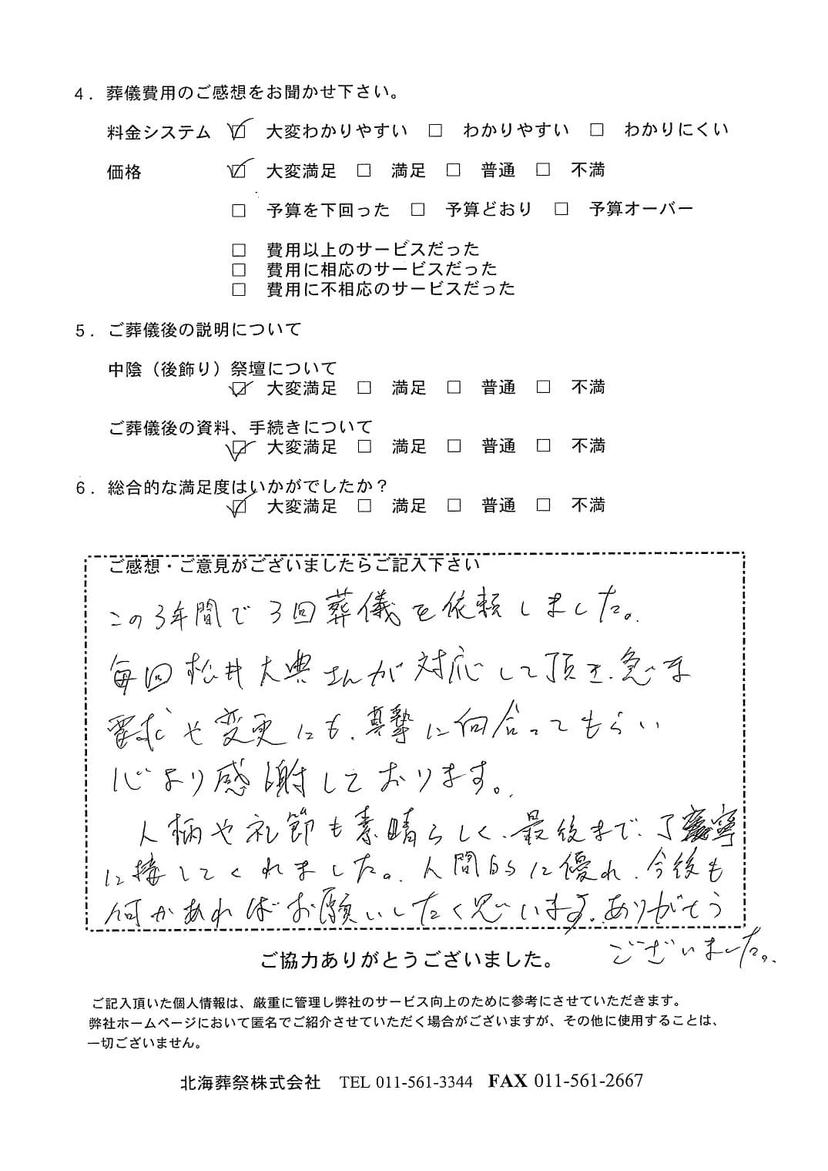 4．葬儀費用のご感想をお聞かせ下さい。
料金システム ☑ 大変わかりやすい □ わかりやすい □ わかりにくい
価格 ☑ 大変満足 □ 満足 □ 普通 □ 不満
□ 予算を下回った □ 予算どおり □ 予算オーバー
□ 費用以上のサービスだった
□ 費用に相応のサービスだった
□ 費用に不相応のサービスだった
5．ご葬儀後の説明について
中陰（後飾り）祭壇について
☑ 大変満足 □ 満足 □ 普通 □ 不満
ご葬儀後の資料、手続きについて
☑ 大変満足 □ 満足 □ 普通 □ 不満
6．総合的な満足度はいかがでしたか？
☑ 大変満足 □ 満足 □ 普通 □ 不満
ご感想・ご意見がございましたらご記入下さい
この3年間で3回葬儀を依頼しました。
毎回松井大典さんが対応して頂き、急な
要求や変更にも、真摯に向合ってもらい
心より感謝しております。
人柄や礼節も素晴らしく、最後まで、丁寧
に接してくれました。人間的に優れ、今後も
何かあればお願いしたく思います。ありがとう
ございました。
ご協力ありがとうございました。
ご記入頂いた個人情報は、厳重に管理し弊社のサービス向上のために参考にさせていただきます。
弊社ホームページにおいて匿名でご紹介させていただく場合がございますが、その他に使用することは、
一切ございません。
北海葬祭株式会社 TEL 011-561-3344 FAX 011-561-2667